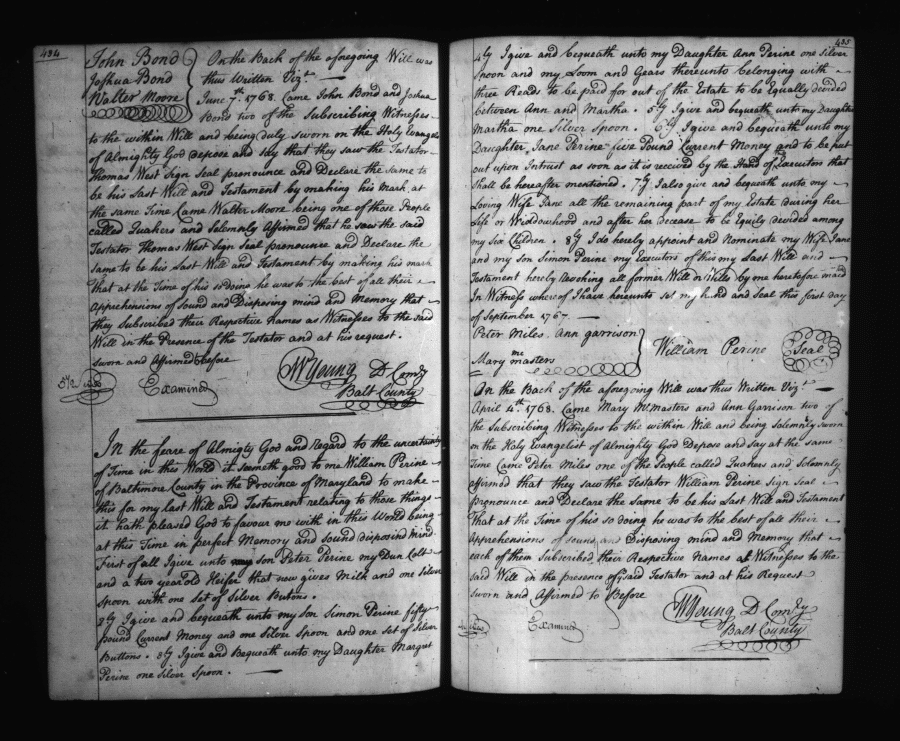 434
John Bond
Joshua Bond
Walter Moore
On the Back of the aforegoing Will was
thus Written Vizt.
June 7th. 1768. Came John Bond and Joshua
Bond two of the Subscribing Witnesses
to the within Will and being duly sworn on the Holy Evangels
of Almighty God depose and say that they saw the Testator
Thomas West Sign Seal pronounce and Declare the same to
be his Last Will and Testament by making his Mark, at
the same Time Came Walter Moore being one of those People
called Quakers and Solemnly Affirmed that he saw the said
Testator Thomas West Sign Seal pronounce and Declare the
same to be his Last Will and Testament by making his mark
that at the Time of his so doing he was to the best of all their
Apprehensions of sound and Disposing mind and Memory that
they Subscribed their Respective Names as Witnesses to the said
Will in the Presence of the Testator and at his request.
sworn and Affirmed before
Examined
WYoung D Comry
Balt County
In the feare of Almigty God and Regard to the uncertainty
of Time in this World it seemeth good to me William Perine
of Baltimore County in the Province of Maryland to make
this for my last Will and Testament relating to those things
it hath pleased God to favour me with in this World being
at this Time in perfect Memory and sound disposing mind
First of all I give unto my son Peter Perine my Dun Colt
and a two year Old Heifer that now gives Milk and one Silver
Spoon with one set of Silver Butons.
2ly I give and bequeath unto my son Simon Perine fifty
pound Current Money and one Silver Spoon and one set of Silver
Buttons. 3ly I give and Bequeath unto my Daughter Margret
Perine one Silver Spoon.
435
4ly I give and bequeath unto my Daughter Ann Perine one Silver
Spoon and my Loom and Gears thereunto belonging with
three Reads to be paid for out of the Estate to be Equally devided
between Ann and Martha. 5ly I give and bequeath unto my Daughter
Martha one Silver Spoon. 6ly I give and bequeath unto my
Daughter, Jane Perine five Pound Current Money and to be put
out upon Intrust as soon as it is received by the Hand of Executors that
shall be hereafter mentioned. 7ly I also give and bequeath unto my
Loving Wife Jane all the remaining part of my Estate during her
Life or Widdowhood and after her decease to be Equily devided among
my Six Children. 8ly I do hereby appoint and Nominate my Wife Jane
and my son Simon Perine my Executors of this my Last Will and
Testament hereby Revoking all former Will or Wills by me heretofore made
In Witness whereof I have hereunto set my hand and Seal this first day
of September 1767.
Peter Miles. Ann garrison
Mary mcmasters
William Perine
Seal
On the Back of the aforegoing Will was thus Written Vizt
April 4th. 1768. Came Mary McMasters and Ann Garrison two of
the Subscribing Witnesses to the within Will and being Solemnly sworn
on the Holy Evangelist of Almighty God Depose and Say at the same
Time Came Peter Miles one of the People called Quakers and Solemnly
affirmed that they saw the Testator William Perine sign Seal
pronounce and Declare the same to be his Last Will and Testament
That at the Time of his so Doing he was to the best of all their
Apprehensions of sound and Disposing mind and Memory that
each of them Subscribed their Respective Names as Witnesses to the
said Will in the presence of said Testator and at his Request
sworn and Affirmed to Before
Examined
WYoung D Comry
Balt County